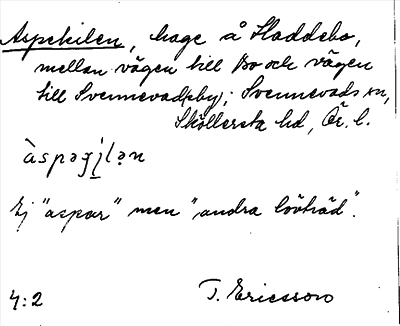 Aspekilen, hage å Haddebo,
mellan vägen till Bo och vägen
till Svennevad(by); Svennevads sn,
Sköllersta hd, Ör. l.
àspəği̯lən
Ej "aspar" men "andra lövträd".
4:2 T. Ericsson